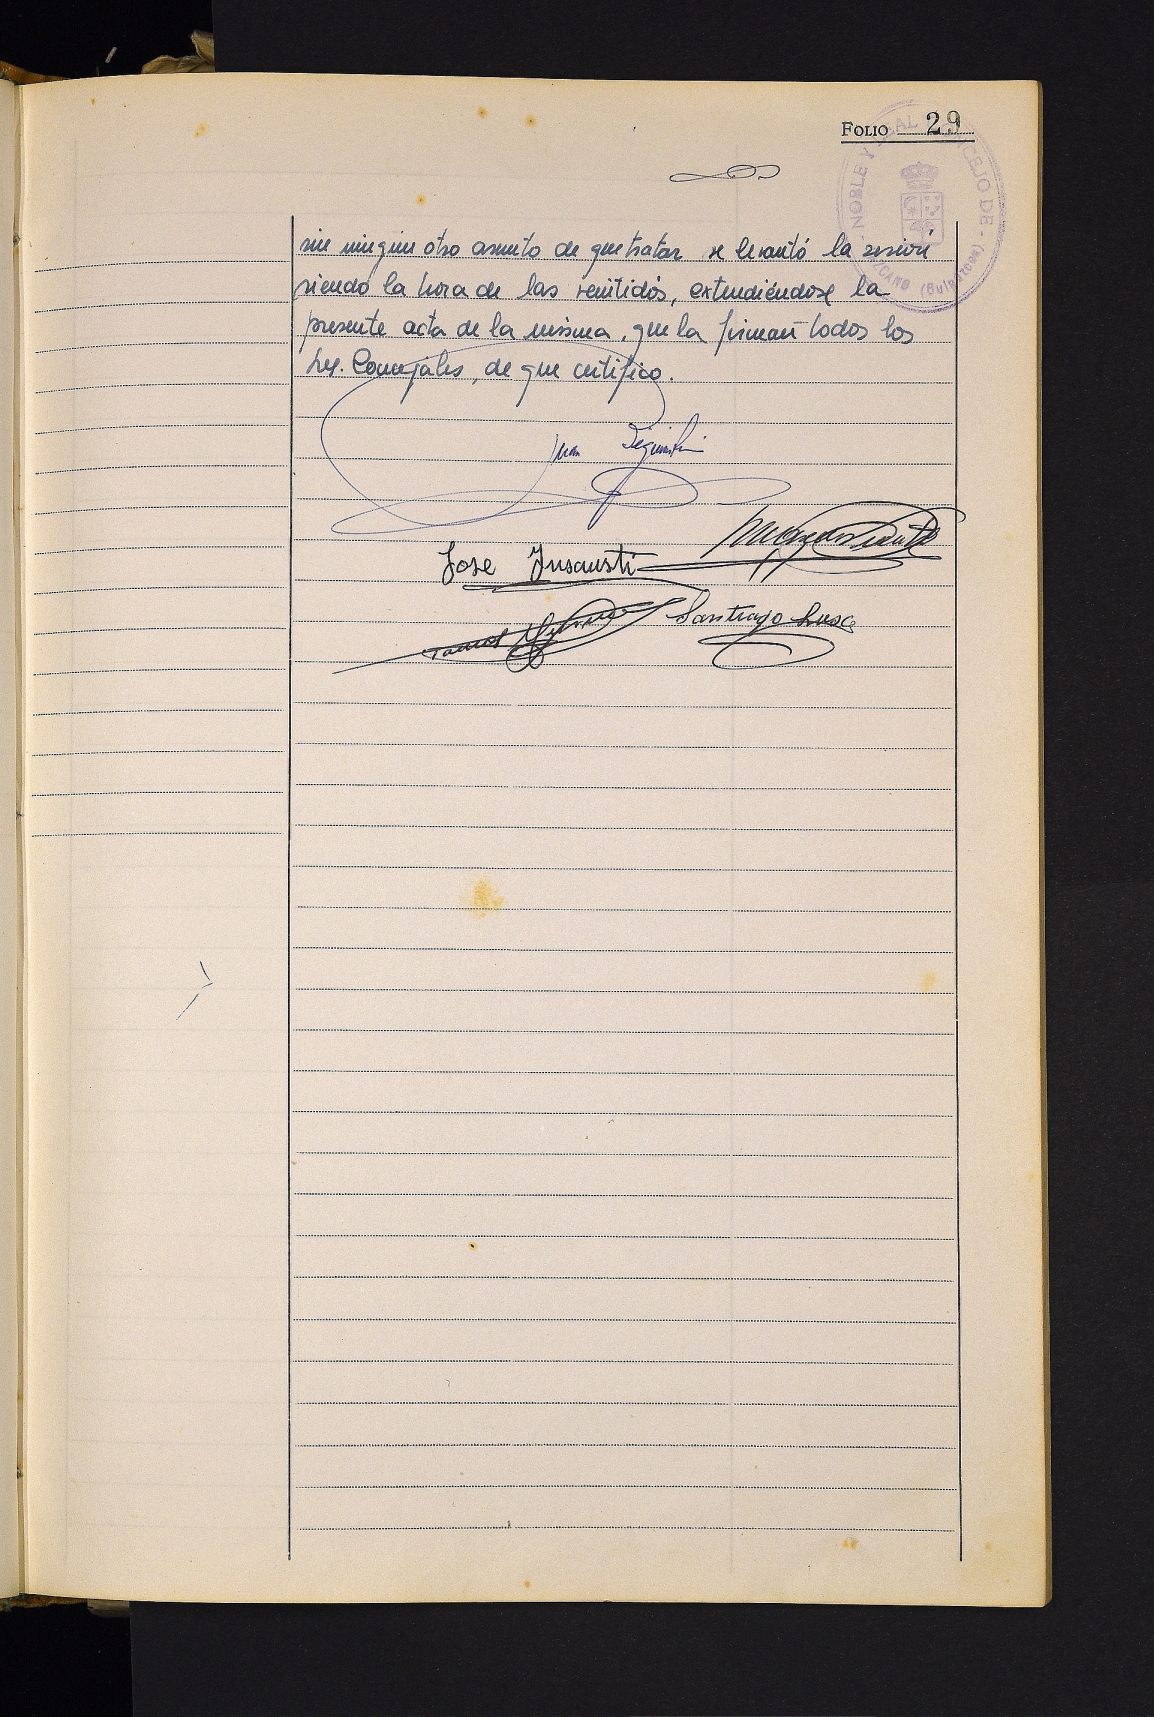 FOLIO 29
NOBLE Y LEAL CONCEJO DE
(Guipúzcoa)
sin ningún otro asunto de que tratar se levantó la sesión
siendo la hora de las veintidós, extendiéndose la
presente acta de la misma, que la firman todos los
Sres. Concejales, de que certifico.
Juan
Jose Insausti
Santiago Lasa
Tomas